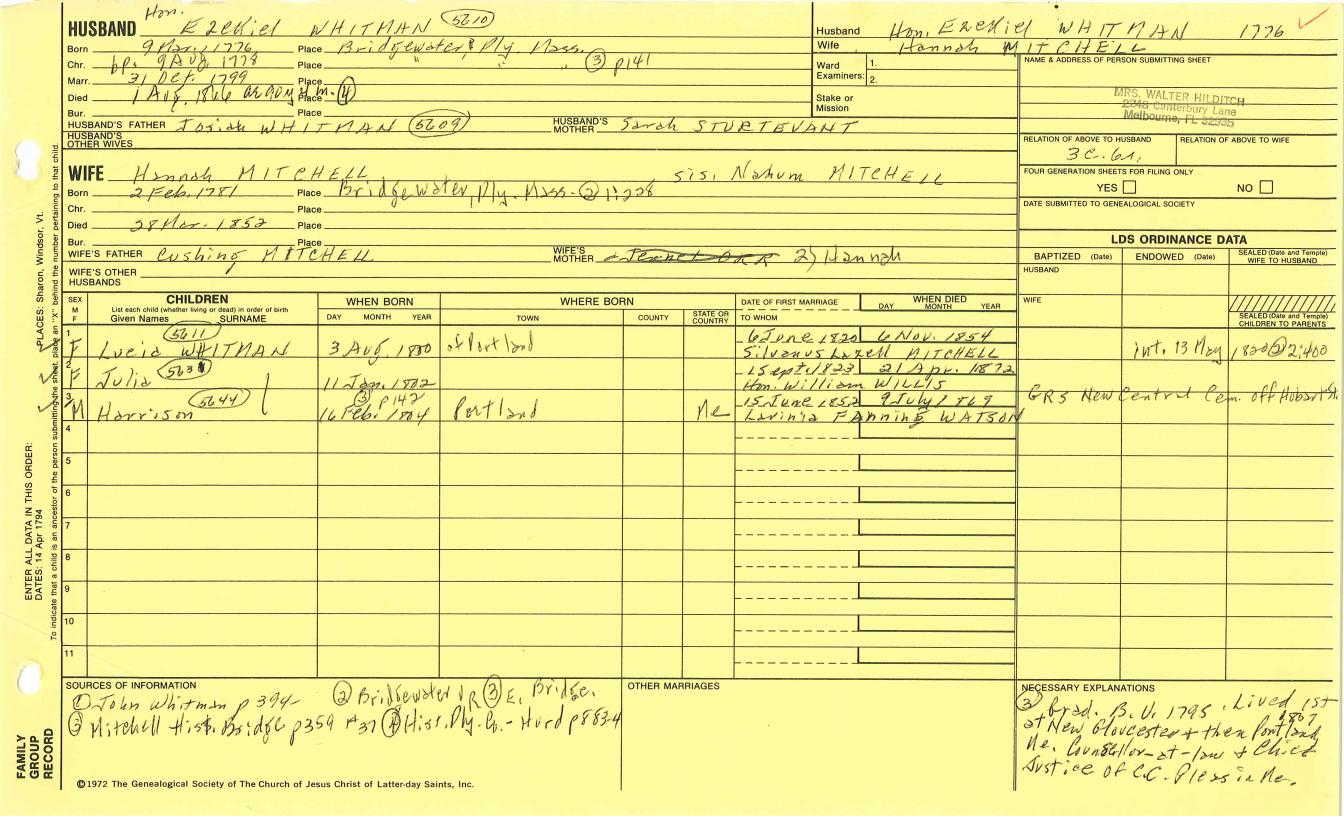 HUSBAND Hon. Ezekiel WHITMAN 5610
Born 9 Mar. 1776 Place Bridgewater, Ply. Mass.
Chr. bp. 9 Aug 1778 Place " " " ③ p141
Marr. 31 Oct. 1799 Place
Died 1 Aug. 1866 Place ④
Bur. Place
HUSBAND'S FATHER Josiah WHITMAN 5609 HUSBAND'S MOTHER Sarah STURTEVANT
HUSBAND'S OTHER WIVES
WIFE Hannah MITCHELL sis. Nahum MITCHELL
Born 2 Feb. 1781 Place Bridgewater, Ply. Mass. ② 1:228
Chr. Place
Died 28 Mar. 1852 Place
Bur. Place
WIFE'S FATHER Cushing MITCHELL WIFE'S MOTHER 2) Hannah
WIFE'S OTHER HUSBANDS
Husband Hon. Ezekiel WHITMAN 1776
Wife Hannah MITCHELL
Ward Examiners: 1.
2.
Stake or Mission
NAME & ADDRESS OF PERSON SUBMITTING SHEET
MRS. WALTER HILDITCH
2348 Canterbury Lane
Melbourne, FL 32935
RELATION OF ABOVE TO HUSBAND RELATION OF ABOVE TO WIFE
3c. 6r.
FOUR GENERATION SHEETS FOR FILING ONLY
YES NO
DATE SUBMITTED TO GENEALOGICAL SOCIETY
LDS ORDINANCE DATA
BAPTIZED (Date) ENDOWED (Date) SEALED (Date and Temple) WIFE TO HUSBAND
HUSBAND
WIFE
SEALED (Date and Temple) CHILDREN TO PARENTS
SEX M F CHILDREN WHEN BORN WHERE BORN DATE OF FIRST MARRIAGE WHEN DIED
List each child (whether living or dead) in order of birth DAY MONTH YEAR
Given Names SURNAME DAY MONTH YEAR TOWN COUNTY STATE OR COUNTRY TO WHOM
5611
1 F Lucia WHITMAN 3 Aug. 1800 of Portland 6 June 1820 6 Nov. 1854
Silvanus Lazell MITCHELL int. 13 May 1820 ② 2:400
2 F Julia 11 Jan. 1802 1 Sept. 1823 21 Apr. 1872
Hon. William WILLIS
③ p142
3 M Harrison 5644 16 Feb. 1804 Portland Me 15 June 1852 9 July 1869
Lavinia Fanning WATSON GRS New Central Cem. off Hobart St.
4
5
6
7
8
9
10
11
SOURCES OF INFORMATION
① John Whitman p 394 ② Bridgewater VR ③ E. Bridge.
③ Mitchell Hist. Bridge p359 #37 ④ Hist. Ply. Co. - Hurd p883-4
OTHER MARRIAGES
NECESSARY EXPLANATIONS
③ Grad. B.U. 1795. Lived 1st
at New Gloucester & then 1807 Portland,
Me. Counsellor-at-law & Chief
Justice of C.C. Pleas in Me.
©1972 The Genealogical Society of The Church of Jesus Christ of Latter-day Saints, Inc.
ENTER ALL DATA IN THIS ORDER:
DATES: 14 Apr 1794 PLACES: Sharon, Windsor, Vt.
To indicate that a child is an ancestor of the person submitting the sheet, place an "X" behind the number pertaining to that child.
FAMILY GROUP RECORD